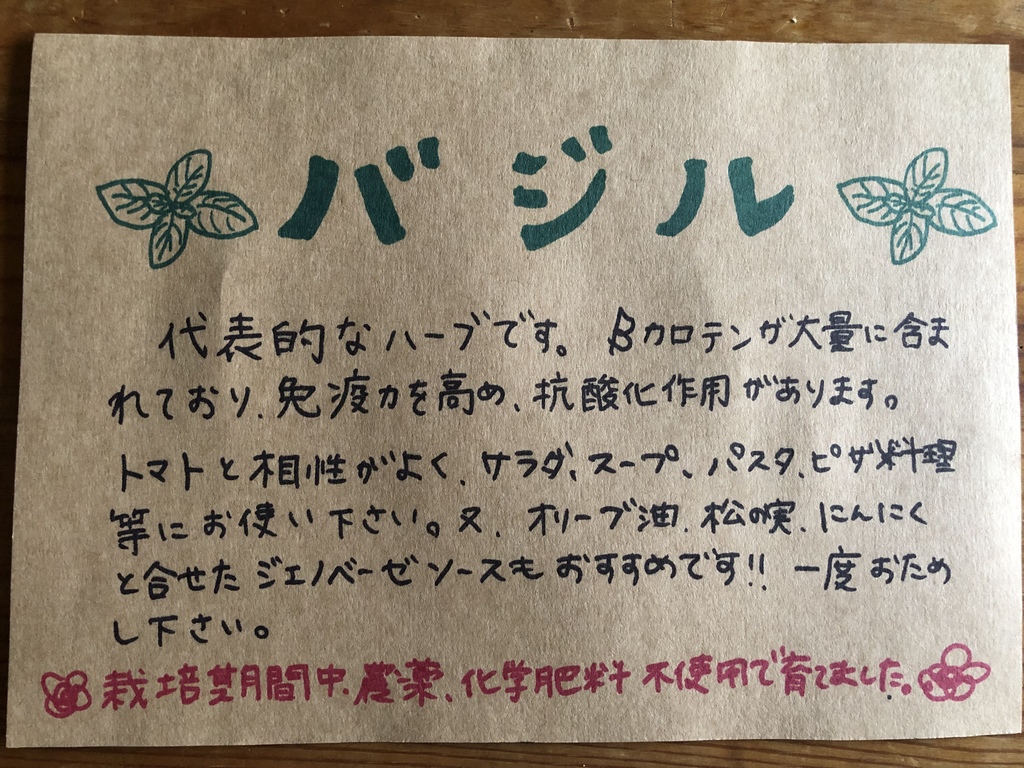 バジル
代表的なハーブです。βカロテンが大量に含ま
れており、免疫力を高め、抗酸化作用があります。
トマトと相性がよく、サラダ、スープ、パスタ、ピザ料理
等にお使い下さい。又、オリーブ油、松の実、にんにく
と合せたジェノベーゼソースもおすすめです!! 一度おため
し下さい。
栽培期間中、農薬、化学肥料不使用で育てました。